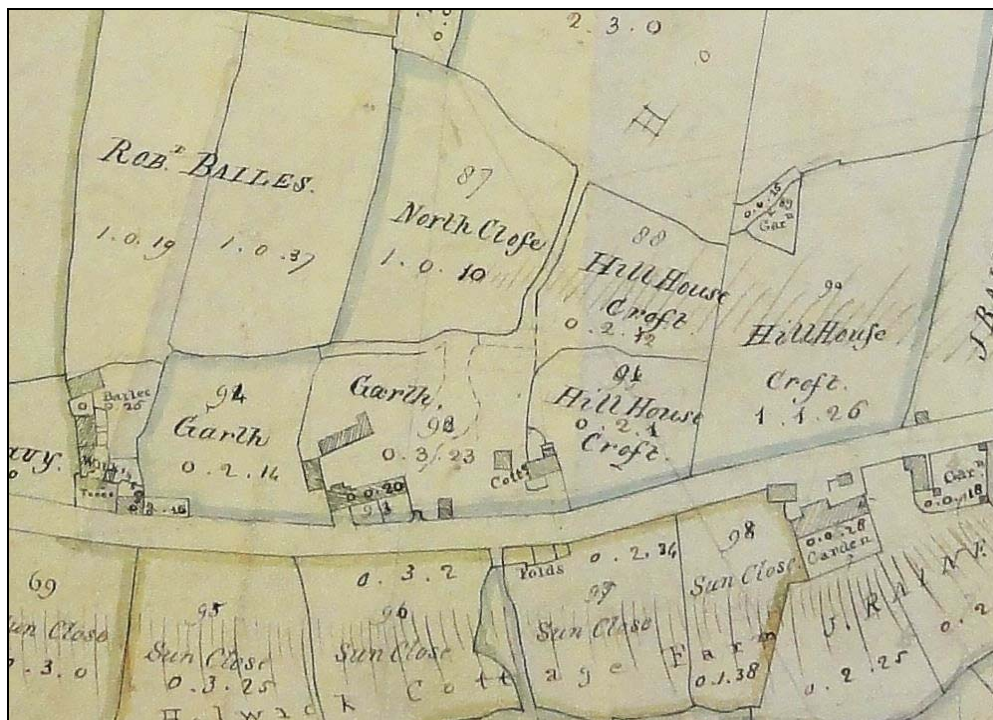 2.3.0
ROB.T BAILES.
1.0.19
1.0.37
87
North Close
1.0.10
88
Hill House
Croft
0.2.12
0.0.15
89
Gar.n
90
Hill House
Croft.
1.1.26
94
Garth
0.2.14
Garth.
0.3.23
91
Hill House
0.2.1
Croft.
Bailes
0.0.20
Cott.s
Gar.n
0.0.18
69
Sun Close
.3.0
95
Sun Close
0.3.25
0.3.2
96
Sun Close
Folds
0.2.34
97
Sun Close
98
Sun Close
0.1.38
0.0.28
Garden
0.2.25
0.2
Cottage Farm